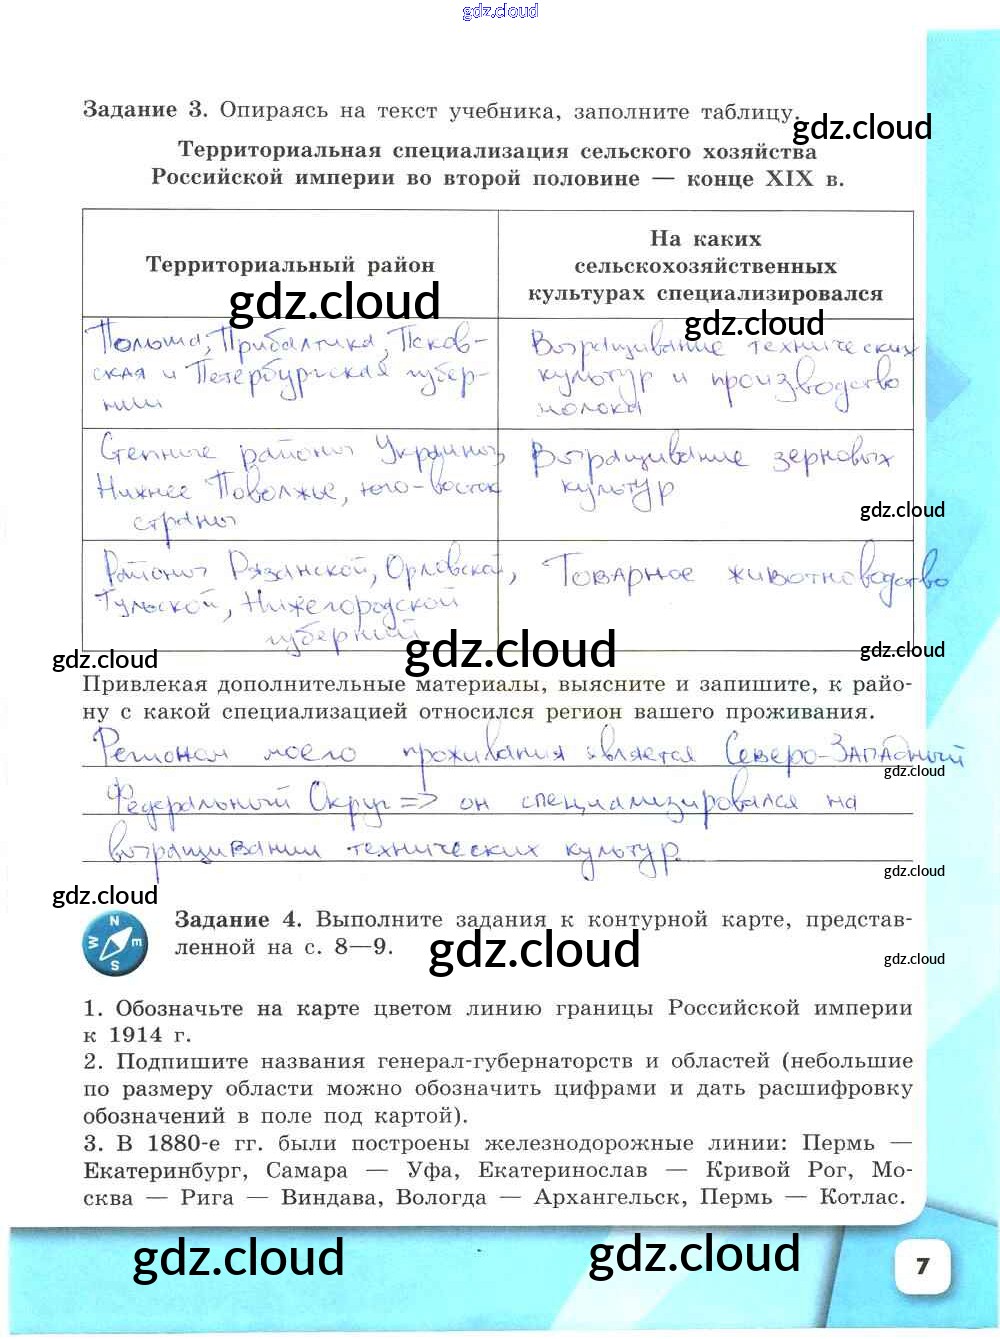 gdz.cloud
Задание 3. Опираясь на текст учебника, заполните таблицу.
gdz.cloud
Территориальная специализация сельского хозяйства
Российской империи во второй половине — конце XIX в.
Территориальный район
На каких
сельскохозяйственных
культурах специализировался
gdz.cloud
gdz.cloud
Польша, Прибалтика, Псков-
ская и Петербургская губер-
нии
Выращивание технических
культур и производство
молока
Степные районы Украины,
Нижнее Поволжье, юго-восток
страны
Выращивание зерновых
культур
gdz.cloud
Районы Рязанской, Орловской,
Тульской, Нижегородской
губерний
Товарное животноводство
gdz.cloud
gdz.cloud
gdz.cloud
Привлекая дополнительные материалы, выясните и запишите, к райо-
ну с какой специализацией относился регион вашего проживания.
Регионом моего проживания является Северо-Западный
gdz.cloud
Федеральный Округ => он специализировался на
выращивании технических культур.
gdz.cloud
gdz.cloud
N
W E
S
Задание 4. Выполните задания к контурной карте, представ-
ленной на с. 8—9.
gdz.cloud
gdz.cloud
1. Обозначьте на карте цветом линию границы Российской империи
к 1914 г.
2. Подпишите названия генерал-губернаторств и областей (небольшие
по размеру области можно обозначить цифрами и дать расшифровку
обозначений в поле под картой).
3. В 1880-е гг. были построены железнодорожные линии: Пермь —
Екатеринбург, Самара — Уфа, Екатеринослав — Кривой Рог, Мо-
сква — Рига — Виндава, Вологда — Архангельск, Пермь — Котлас.
gdz.cloud
gdz.cloud
7